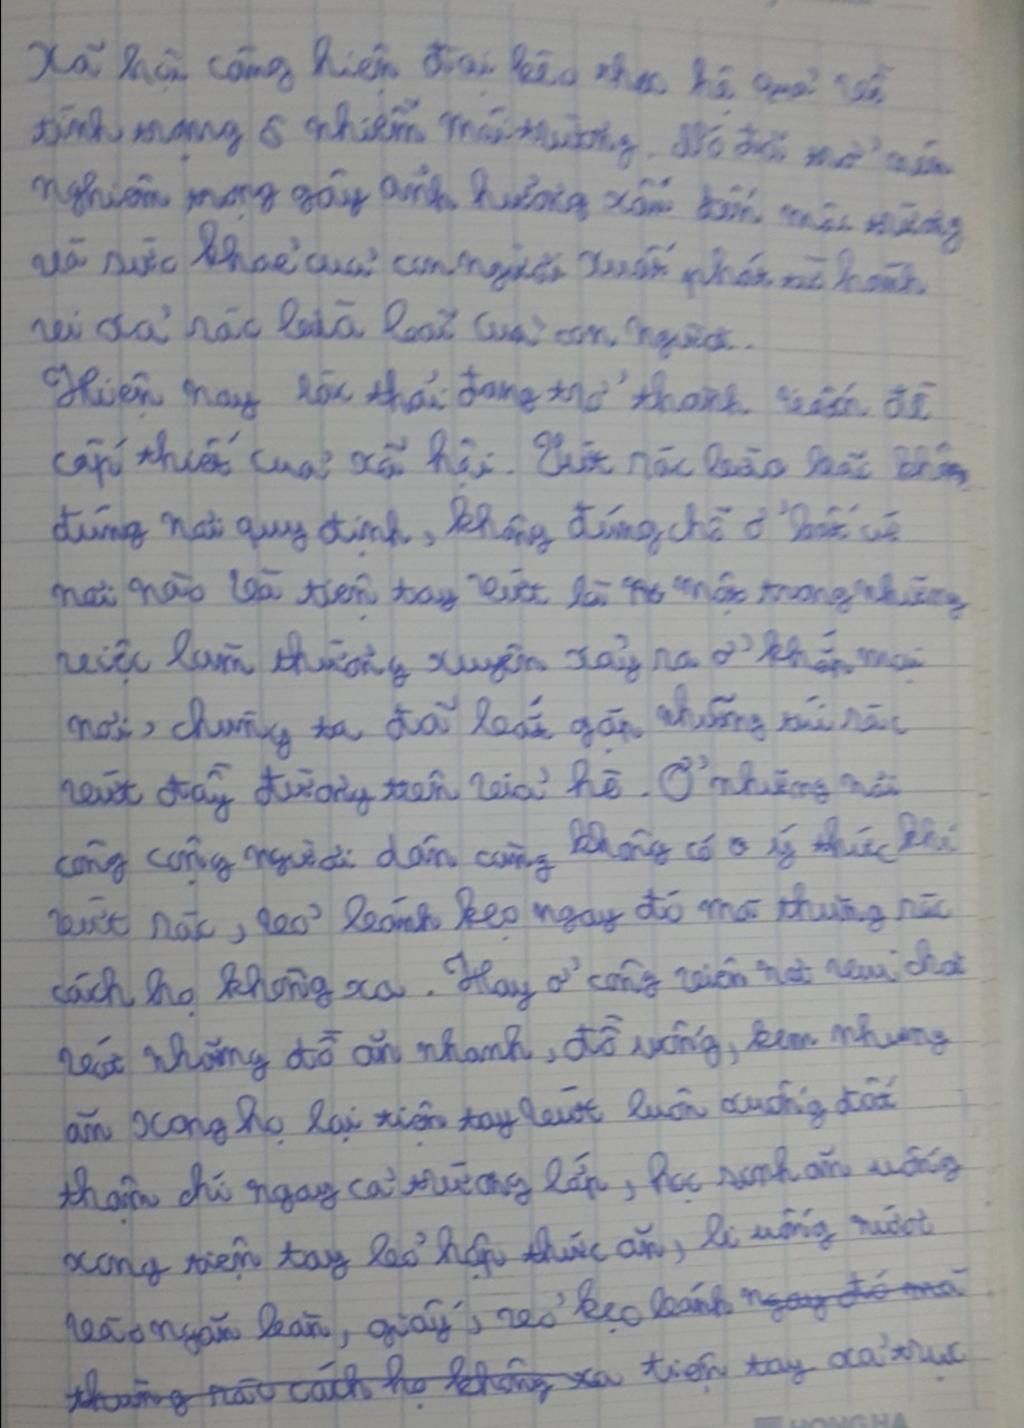 Xã hội càng hiện đại kéo theo hệ quả về
tình trạng ô nhiễm môi trường. Nó đã trở nên
nghiêm trọng gây ảnh hưởng xấu đến môi trường
và sức khoẻ cuả con người xuất phát từ hành
vi xả rác bừa bãi cuả con người.
Hiện nay rác thải đang trở thành vấn đề
cấp thiết cuả xã hội. Vứt rác bừa bãi không
đúng nơi quy định, không đúng chỗ ở bất cứ
nơi nào và tiện tay vứt là một trong những
việc làm thường xuyên xảy ra ở khắp mọi
nơi, chúng ta đã bắt gặp những túi rác
vứt đầy đường trên vỉa hè. Ở những nơi
công cộng người dân cũng không có ý thức khi
vứt rác, vỏ bánh kẹo ngay đó mà thùng rác
cách họ không xa. Hay ở công viên nơi vui chơi
với những đồ ăn nhanh, đồ uống, kem nhưng
ăn xong họ lại tiện tay vứt luôn xuống đất
thậm chí ngay cả trường lớp, học sinh ăn uống
xong tiện tay bỏ hộp thức ăn, li uống nước
vào ngăn bàn, giấy, vỏ kẹo bánh ngay đó mà
thùng rác cách họ không xa tiện tay xả trực
HONG HA